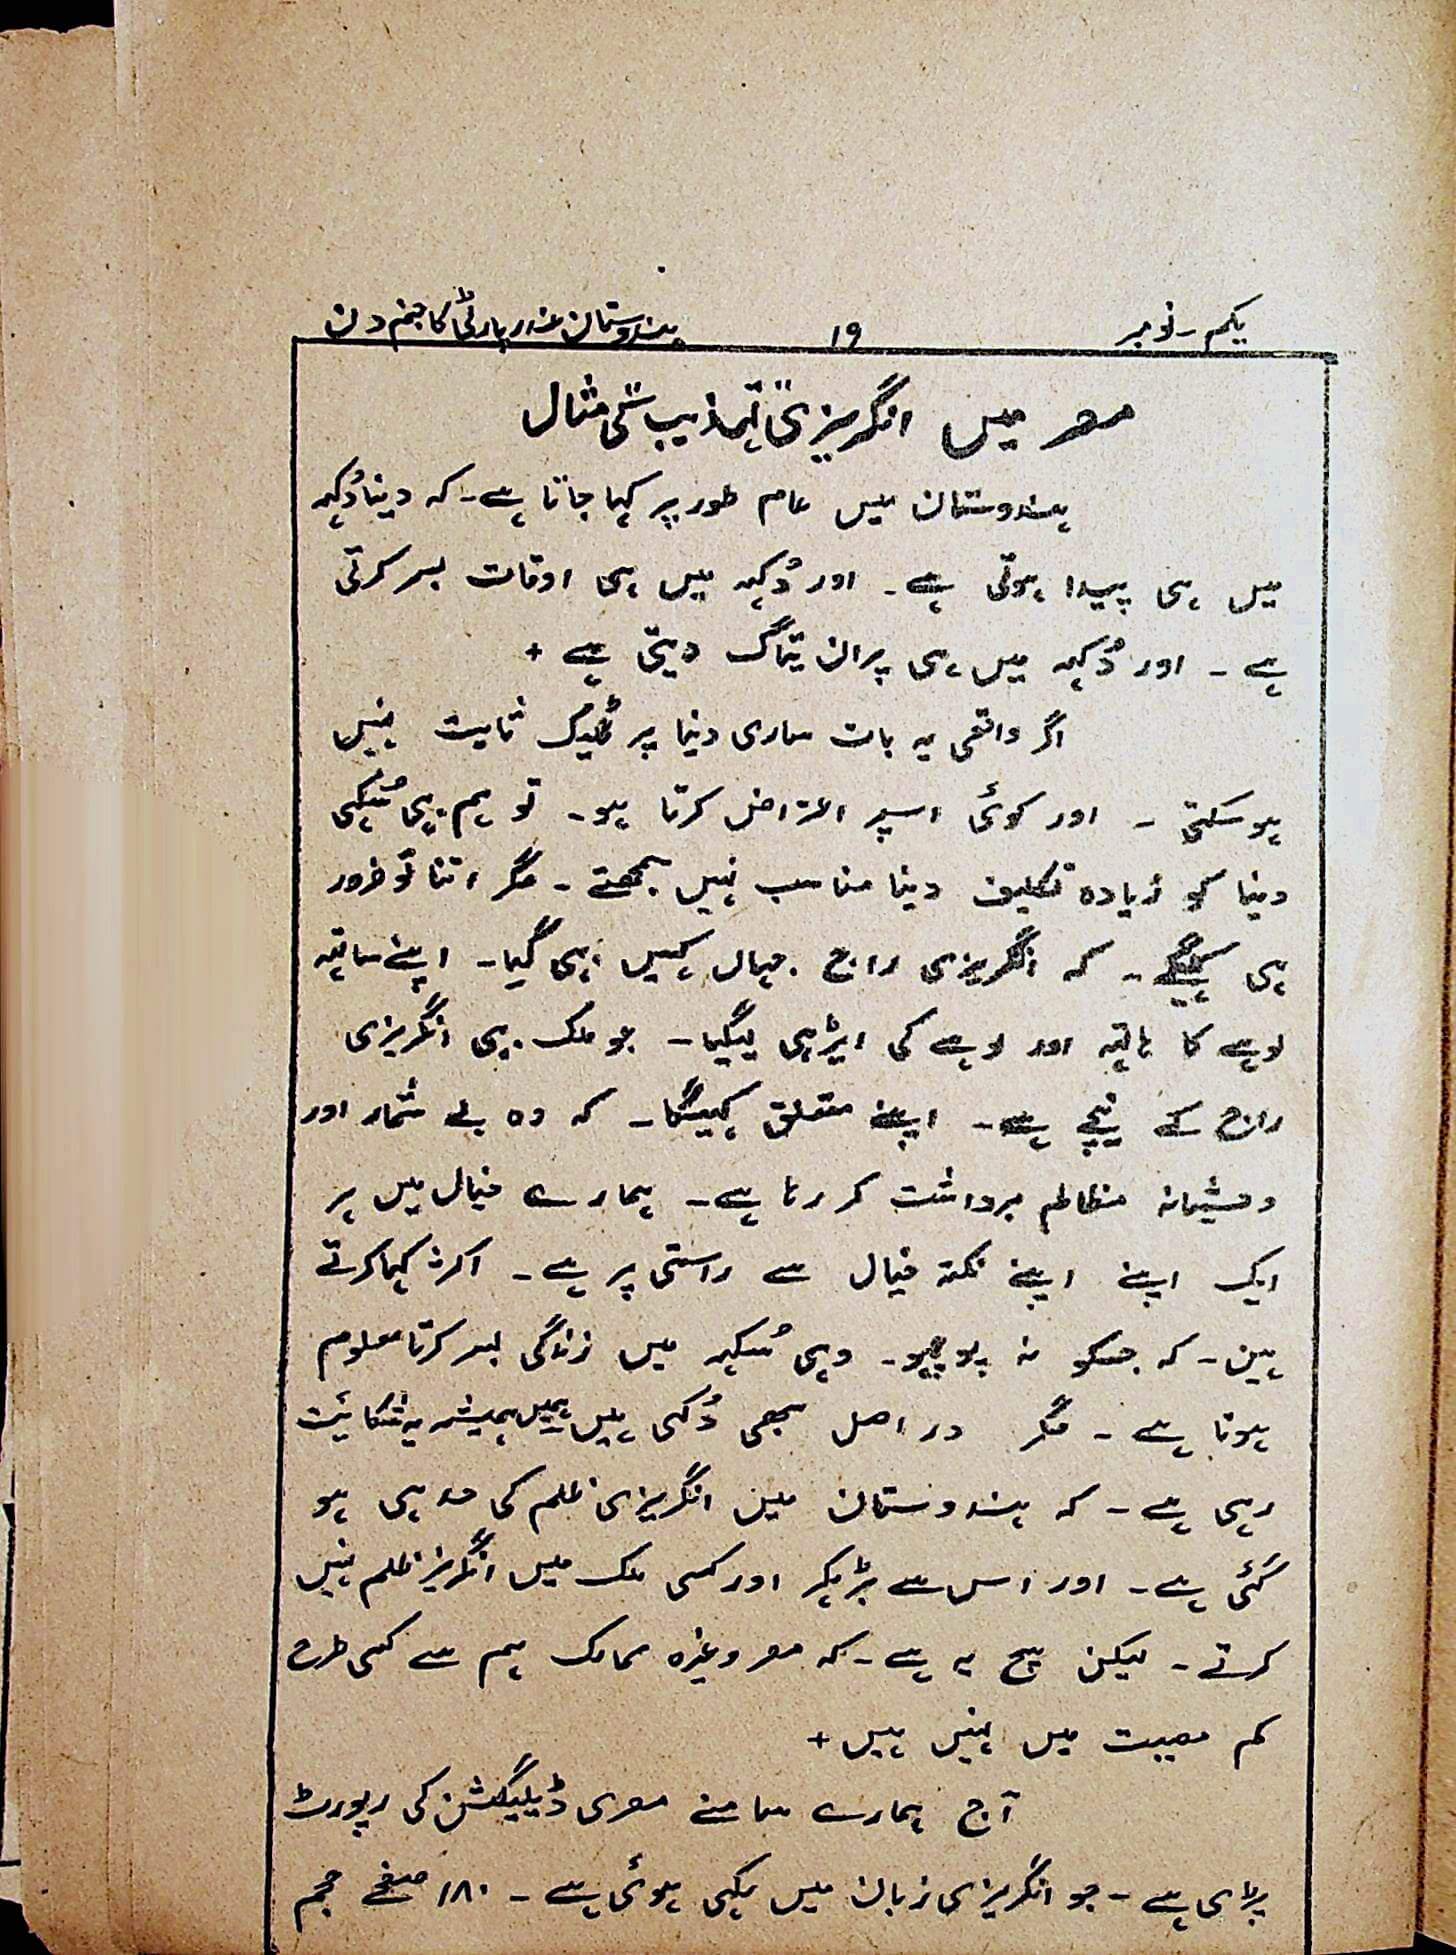 یکم - نومبر ۱۹ ہندوستان غدر پارٹی کا جنم دن
مصر میں انگریزی "تہذیب" کی مثال
ہندوستان میں عام طور پر کہا جاتا ہے - کہ دینا دُکہہ
میں ہی پیدا ہوتی ہے - اور دُکہہ میں ہی اوقات بسر کرتی
ہے - اور دُکہہ میں ہی پران تیاگ دیتی ہے +
اگر واقعی یہ بات ساری دنیا پر ٹھیک ثابت نہیں
ہو سکتی - اور کوئی اسپر اعتراض کرتا ہو - تو ہم بہی سُکہی
دینا کو زیادہ تکلیف دینا مناسب نہیں سمجھتے - مگر اتنا تو ضرور
ہی کہینگے - کہ انگریزی راج جہاں کہیں بہی گیا - اپنے ساتہہ
لوہے کا ہاتہہ اور لوہے کی ایڑہی لیگیا - جو ملک بہی انگریزی
راج کے نیچے ہے - اپنے متعلق کہیگا - کہ وہ بے شمار اور
وحشیانہ مظالم برداشت کر رہا ہے - ہمارے خیال میں ہر
ایک اپنے اپنے نکتہ خیال سے راستی پر ہے - اکثر کہا کرتے
ہین - کہ جسکو نہ پوچہو - وہی سُکہہ میں زندگی بسر کرتا معلوم
ہوتا ہے - مگر در اصل سبھی دُکہی ہیں ہمیں ہمیشہ یہ شکائیت
رہی ہے - کہ ہندوستان میں انگریزی ظلم کی حد ہی ہو
گئی ہے - اور اس سے بڑہکر اور کسی ملک میں انگریز ظلم نہیں
کرتے - لیکن سچ یہ ہے - کہ مصر وغیرہ ممالک ہم سے کسی طرح
کم مصیبت میں نہیں ہیں +
آج ہمارے سامنے مصری ڈیلیگیشن کی رپورٹ
پڑی ہے - جو انگریزی زبان میں لکہی ہوئی ہے - ۱۸۰ صفحے حجم